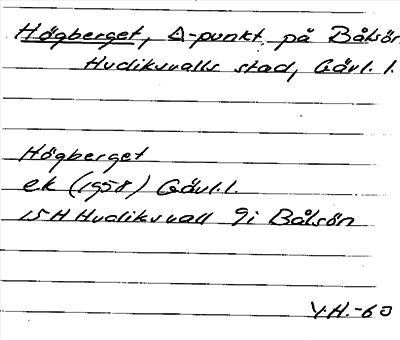 Högberget, Δ-punkt, på Bålsön
Hudiksvalls stad, Gävl. l.
Högberget
ek (1958) Gävl. l.
15 H Hudiksvall 9i Bålsön
Y.H.-60